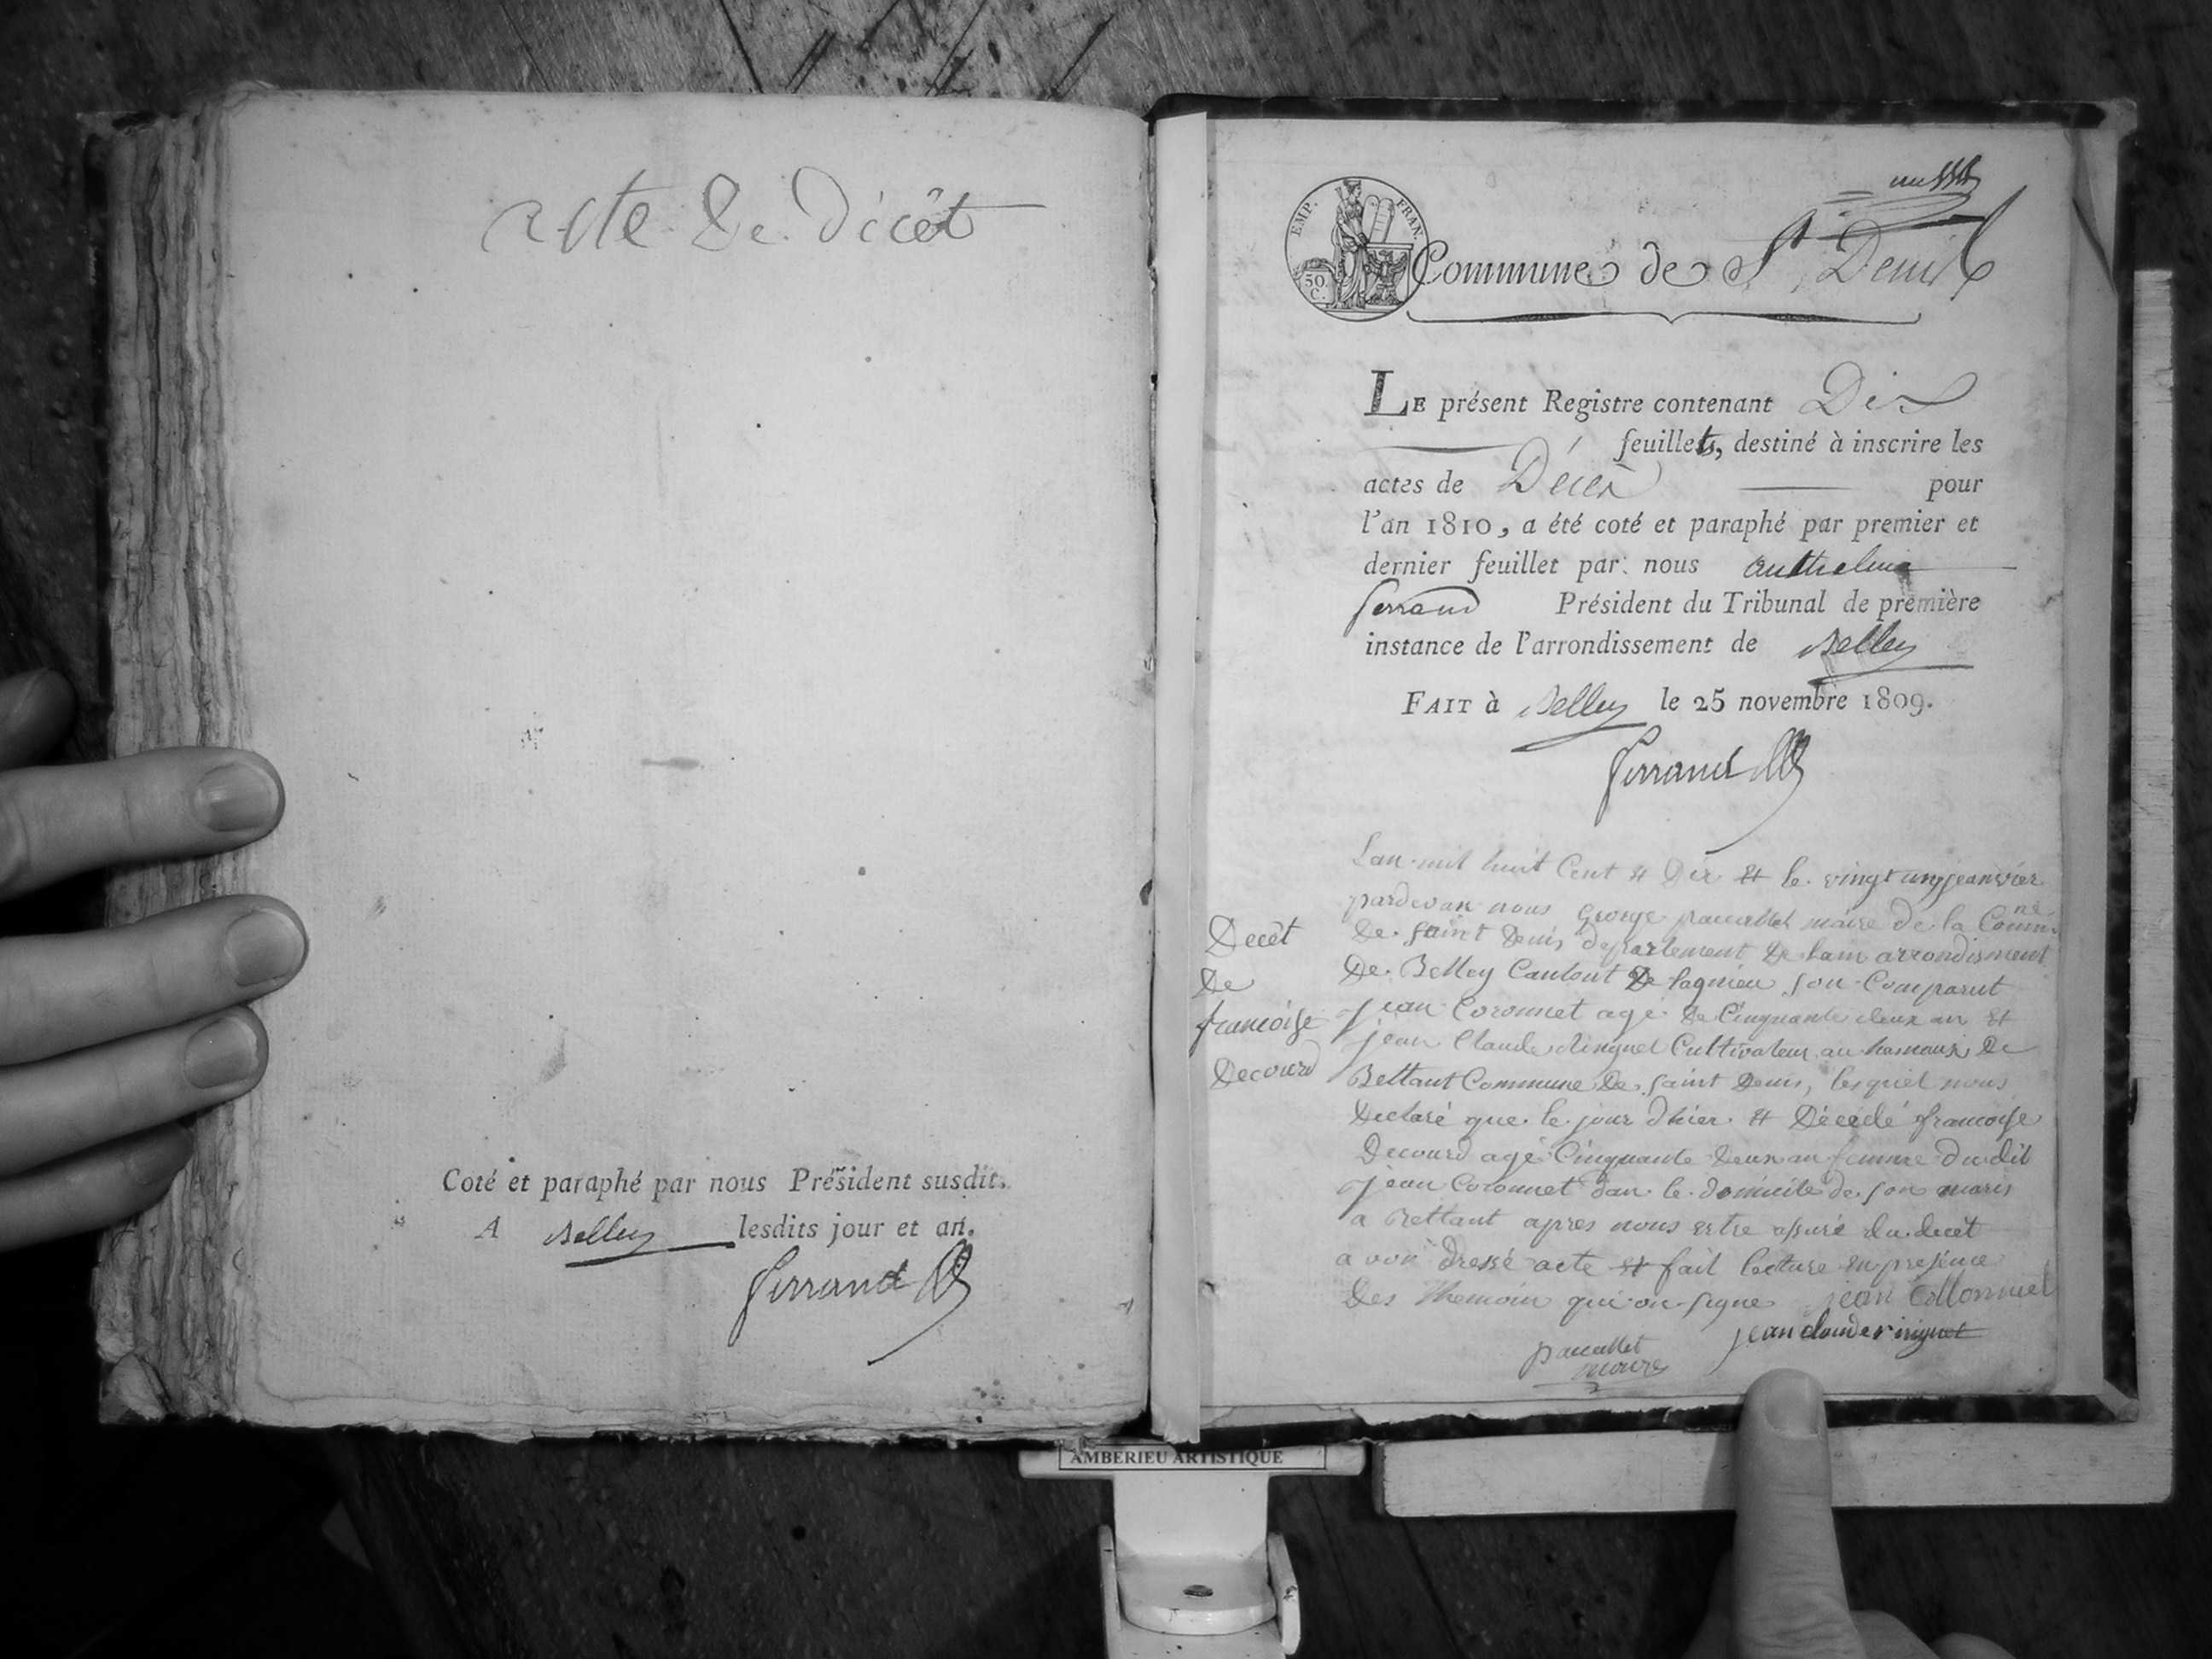 acte De Décêt
Coté et paraphé par nous Président susdit.
A Belley lesdits jour et an.
Ferrand
EMP. FRAN.
50 C.
Commune de St Denis
LE présent Registre contenant Dix
feuillets, destiné à inscrire les
actes de Décès pour
l'an 1810, a été coté et paraphé par premier et
dernier feuillet par nous Anthelme
ferrand Président du Tribunal de première
instance de l'arrondissement de Belley
FAIT à Belley le 25 novembre 1809.
Ferrand
Decêt
De
francoise
Decourd
Lan mil huit Cent et Dix et le vingt un jeanvier
pardevan nous George maire de la Comne
De saint Denis departement De lain arrondisment
De Belley Cantont De lagnieu son Comparut
jean Coronnet agé De Cinquante deux an et
jean Claude Cultivateur au hamaux De
Bettant Commune De saint Denis, lesquel nous
Declaré que le jour Dhier et Décédé francoise
Decourd agé Cinquante Deux an femme Dudit
jean Coronnet dan le domicile de son maris
a Bettant apres nous estre assuré du decêt
a von Dressé acte et fait lecture en presence
Des themoin qui on signe jean
jean claude
maire
AMBERIEU ARTISTIQUE